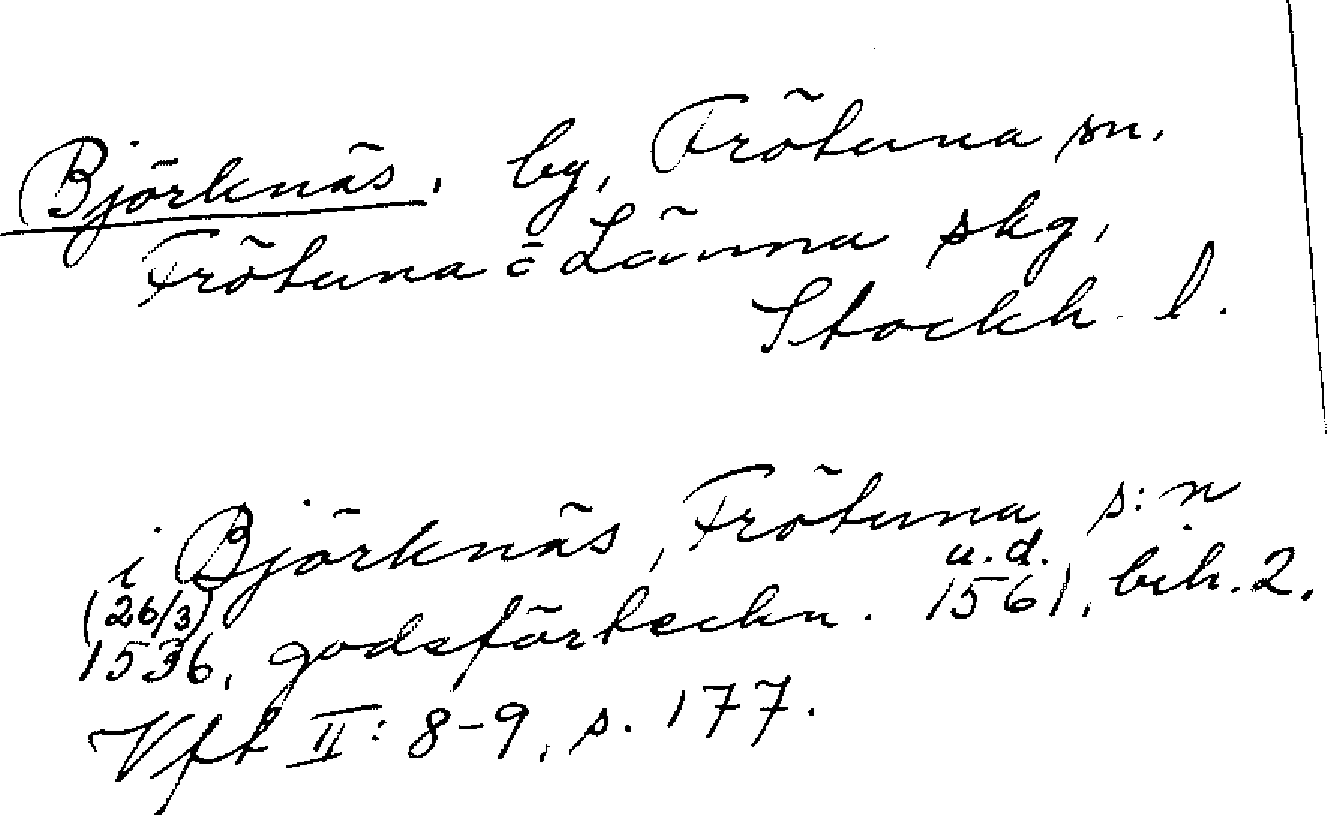 Björknäs. by, Frötuna sn.
Frötuna o Länna skg,
Stockh. l.
i Björknäs, Frötuna s:n
(26/3) u.d.
1536, godsförteckn. 1561, bih. 2.
Vft II: 8-9, s. 177.